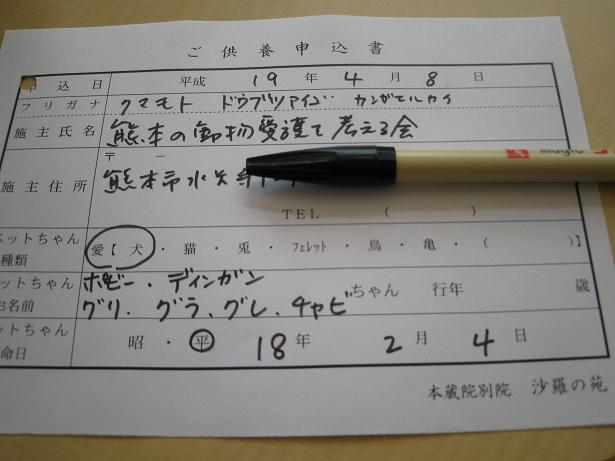 ご供養申込書
申込日 平成 19年 4月 8日
フリガナ クマモト ドウブツアイゴ カンガエルカイ
施主氏名 熊本の動物愛護を考える会
〒 －
施主住所 熊本市水
TEL ( )
ペットちゃん種類 愛【 犬 ・ 猫 ・ 兎 ・ フェレット ・ 鳥 ・ 亀 ・ ( )】
ットちゃん お名前 ボビー・ディンガン
グリ、グラ、グレ、チャビ ちゃん 行年 歳
ットちゃん 命日 昭・平 18年 2月 4日
本蔵院別院 沙羅の苑